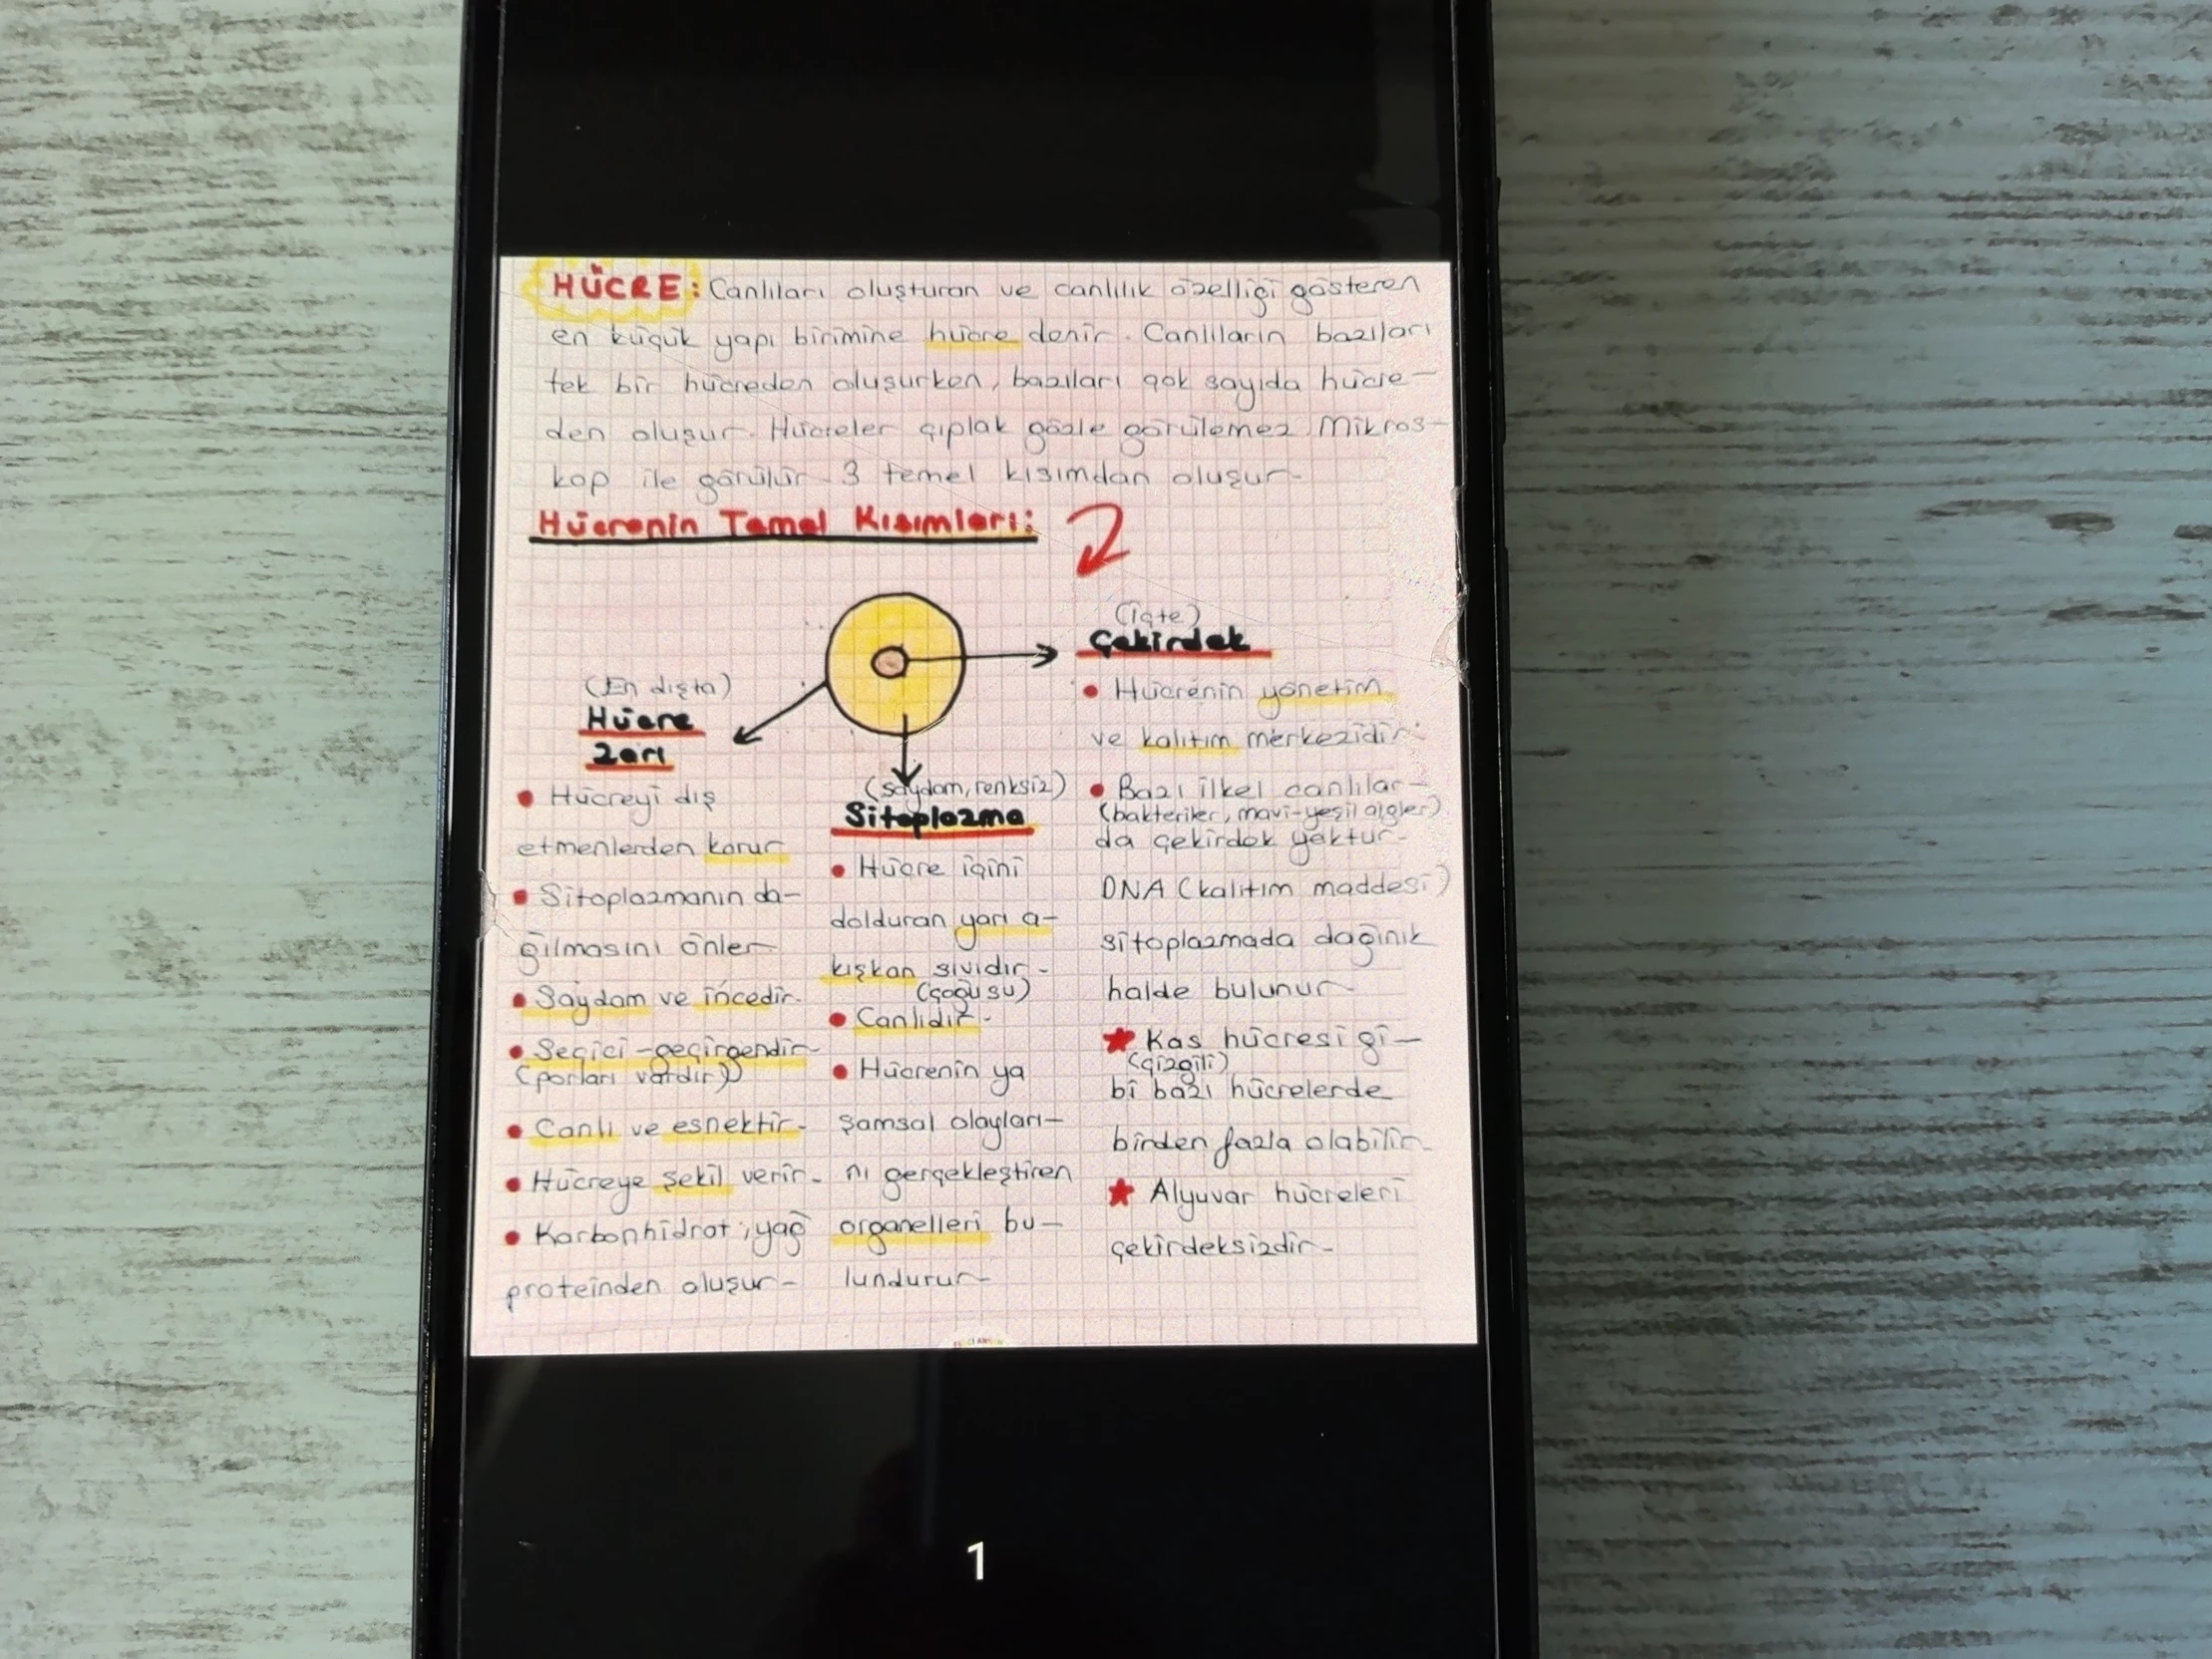 HÜCRE: Canlıları oluşturan ve canlılık özelliği gösteren
en küçük yapı birimine hücre denir. Canlıların bazıları
tek bir hücreden oluşurken, bazıları çok sayıda hücre-
den oluşur. Hücreler çıplak gözle görülemez. Mikros-
kop ile görülür. 3 temel kısımdan oluşur.
Hücrenin Temel Kısımları:
(En dışta)
Hücre
Zarı
• Hücreyi dış
etmenlerden korur
• Sitoplazmanın da-
ğılmasını önler.
• Saydam ve incedir.
• Seçici-geçirgendir
(porları vardır))
• Canlı ve esnektir.
• Hücreye şekil verir.
• Karbonhidrat, yağ
proteinden oluşur.
(saydam, renksiz)
Sitoplazma
• Hücre içini
dolduran yarı a-
kışkan sıvıdır.
(çoğu su)
• Canlıdır.
• Hücrenin ya
şamsal olayları-
nı gerçekleştiren
organelleri bu-
lundurur.
(İçte)
Çekirdek
• Hücrenin yönetim
ve kalıtım merkezidir.
• Bazı ilkel canlılar-
(bakteriler, mavi-yeşil algler)
da çekirdek yoktur.
DNA (kalıtım maddesi)
sitoplazmada dağınık
halde bulunur.
★ Kas hücresi gi-
(çizgili)
bi bazı hücrelerde
birden fazla olabilir.
★ Alyuvar hücreleri
çekirdeksizdir.
1